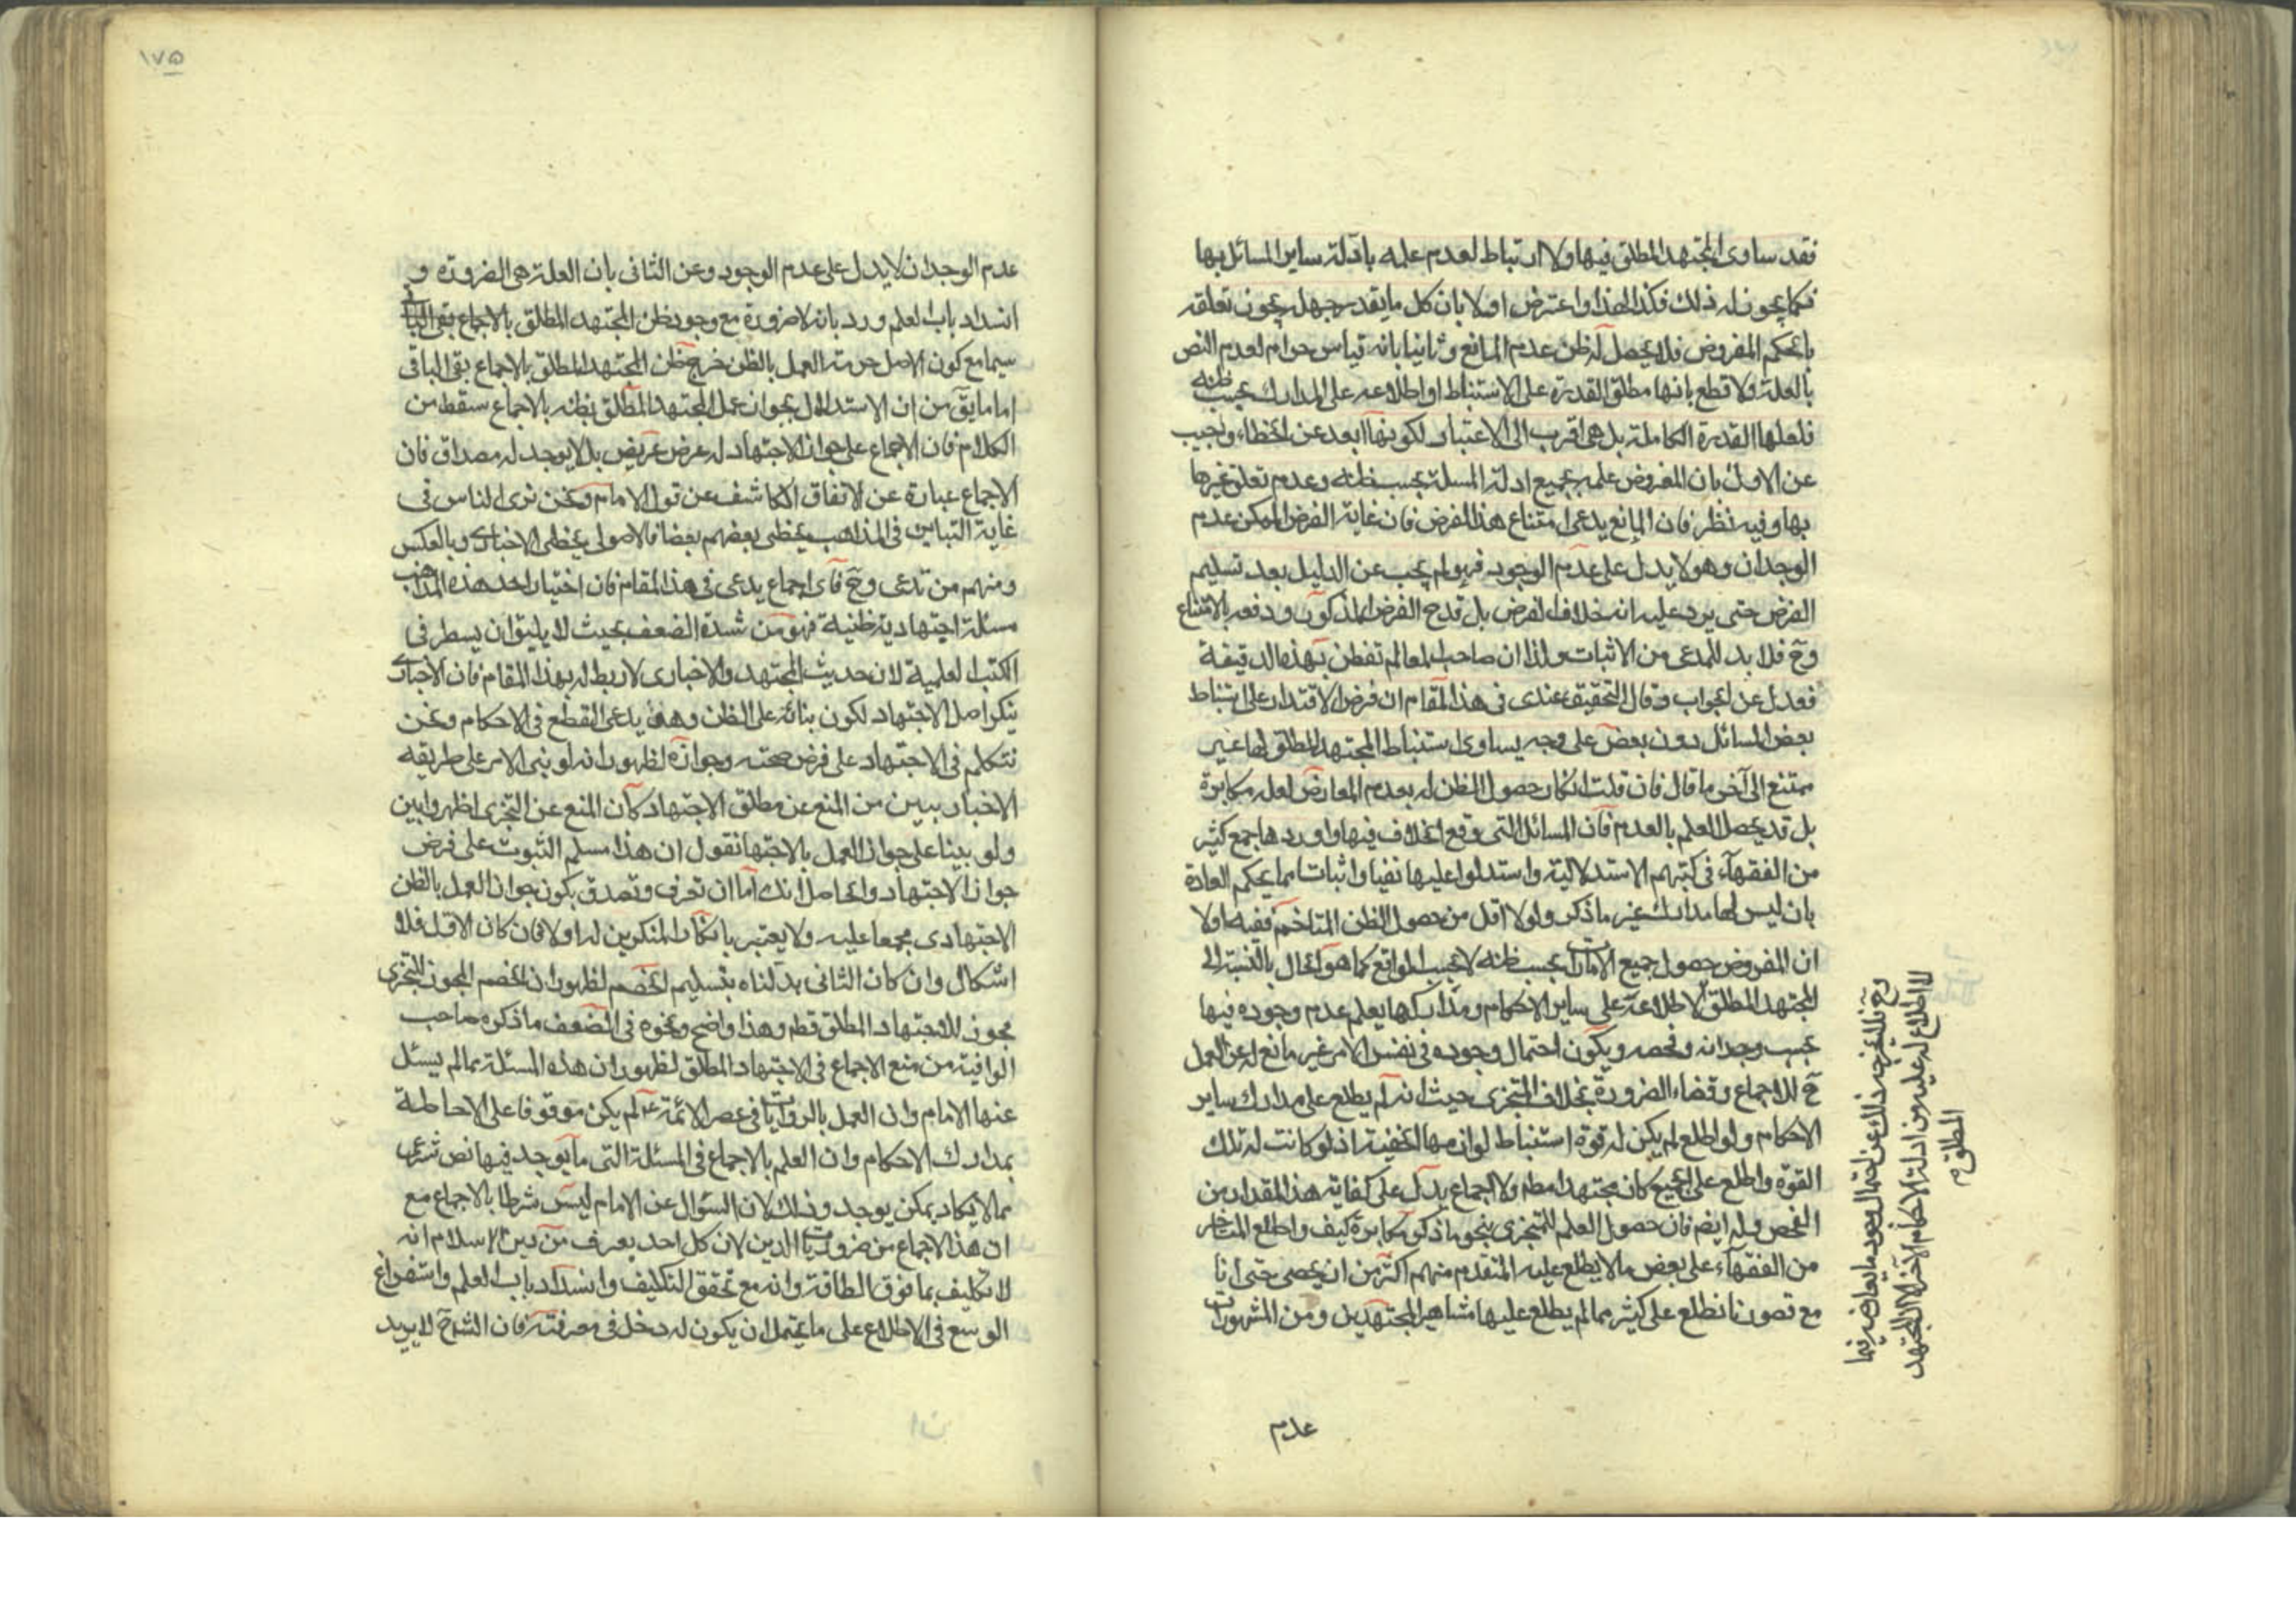 فقد ساوى المجتهد المطلق فيها ولا ارتباط لعدم علمه بادلة ساير المسائل بها
فكما يجوز له ذلك فكذا لهذا واعترض اولا بان كل ما يقدر جهله يجوز تعلقه
بالحكم المفروض فلا يحصل له ظن عدم المانع وثانيا بانه قياس حرام لعدم النص
بالعلة ولا قطع بانها مطلق القدرة على الاستنباط او اطلاعه على المدارك بحسب ظنه
فلعلها القدرة الكاملة بل هى اقرب الى الاعتبار لكونها ابعد عن الخطاء واجيب
عن الاول بان المفروض علمه بجميع ادلة المسئلة بحسب ظنه وعدم تعلق غيرها
بها وفيه نظر فان المانع يدعى امتناع هذا الفرض فان غاية الفرض الممكن عدم
الوجدان وهو لا يدل على عدم الوجود فهو لم يجب عن الدليل بعد تسليم
الفرض حتى يرد عليه انه خلاف الفرض بل قدح الفرض المذكور ودفعه بالامتناع
وح فلا بد للمدعى من الاثبات ولذا ان صاحب المعالم تفطن بهذه الدقيقة
فعدل عن الجواب وقال التحقيق عندى فى هذا المقام ان فرض الاقتدار على استنباط
بعض المسائل دون بعض على وجه يساوى استنباط المجتهد المطلق لها غير
ممتنع الى آخر ما قال فان قلت انكار حصول الظن له بعدم المعارض لعله مكابرة
بل قد يحصل العلم بالعدم فان المسائل التى وقع الخلاف فيها واوردها جمع كثير
من الفقهآء فى كتبهم الاستدلالية واستدلوا عليها نفيا واثباتا مما يحكم العادة
بان ليس لها مدارك غير ما ذكر ولولا اقل من حصول الظن المتاخم ففيه اولا
ان المفروض حصول جميع الامارات بحسب ظنه لا بحسب الواقع كما هو الحال بالنسبة الى
المجتهد المطلق لاطلاعه على ساير الاحكام ومداركها يعلم عدم وجوده فيها
بحسب وجدانه وفحصه ويكون احتمال وجوده فى نفس الامر غير مانع له عن العمل
ح للاجماع وقضاء الضرورة بخلاف المتجزى حيث انه لم يطلع على مدارك ساير
الاحكام ولو اطلع لم يكن له قوة استنباط لوازمها الخفية اذ لو كانت له تلك
القوة واطلع على الجميع كان مجتهدا مطم ولا اجماع يدل على كفاية هذا المقدار من
الفحص وله ايضم فان حصول العلم للمتجزى بنحو ما ذكر مكابرة كيف واطلع المتاخر
من الفقهآء على بعض ما لا يطلع عليه المتقدم منهم اكثر من ان يحصى حتى انا
مع قصورنا نطلع على كثير مما لم يطلع عليها مشاهير المجتهدين ومن المشهورات
وح فلا يخرجه ذلك عن احتمال وجود ما يعارضه فيما
لا اطلاع له عليه من ادلة الاحكام الاخر الا المجتهد
المطلق م
عدم
١٧٥
عدم الوجدان لا يدل على عدم الوجود وعن الثانى بان العلة هى الضرورة و
انسداد باب العلم ورد بانه لا ضرورة مع وجود ظن المجتهد المطلق بالاجماع بقى الباقى
سيما مع كون الاصل حرمة العمل بالظن خرج ظن المجتهد المطلق بالاجماع بقى الباقى
اما ما يق من ان الاستدلال بجواز عمل المجتهد المطلق بظنه بالاجماع سقط من
الكلام فان الاجماع على جواز الاجتهاد له عرض عريض بل لا يوجد له مصداق فان
الاجماع عبارة عن الاتفاق الكاشف عن قول الامام ونحن نرى الناس فى
غاية التباين فى المذاهب يخطى بعضهم بعضا فالاصولى يخطى الاخبارى وبالعكس
ومنهم من تدعى وح فاى اجماع يدعى فى هذا المقام فان اختيار احد هذه المذاهب
مسئلة اجتهادية ظنية فهو من شدة الضعف بحيث لا يليق ان يسطر فى
الكتب العلمية لان حديث المجتهد والاخبارى لا ربط له بهذا المقام فان الاخبارى
ينكر اصل الاجتهاد لكون بنائه على الظن وهو يدعى القطع فى الاحكام ونحن
نتكلم فى الاجتهاد على فرض صحته وجوازه لظهور انه لو بنى الامر على طريقه
الاخباريين من المنع عن مطلق الاجتهاد كان المنع عن التجزى اظهر وابين
ولو بينا على جواز العمل بالاجتهاد نقول ان هذا مسلم الثبوت على فرض
جواز الاجتهاد والحاصل انك اما ان تعرف وتصدق بكون جواز العمل بالظن
الاجتهادى مجمعا عليه ولا يعتبر بانكار المنكرين له او لا فان كان الاول فلا
اشكال وان كان الثانى بدلناه بتسليم الخصم لظهور ان الخصم المجوز للتجزى
مجوز للاجتهاد المطلق قطم وهذا واضح ونحوه فى الضعف ما ذكره صاحب
الوافية من منع الاجماع فى الاجتهاد المطلق لظهور ان هذه المسئلة مما لم يسئل
عنها الامام وان العمل بالروايات فى عصر الائمة ع لم يكن موقوفا على الاحاطة
بمدارك الاحكام وان العلم بالاجماع فى المسئلة التى ما يوجد فيها نص شرعى
مما لا يكاد يمكن يوجد وذلك لان السؤال عن الامام ليس شرطا بالاجماع مع
ان هذا الاجماع من ضروريات الدين لان كل احد يعرف من دين الاسلام انه
لا تكليف بما فوق الطاقة وانه مع تحقق التكليف وانسداد باب العلم واستفراغ
الوسع فى الاطلاع على ما يحتمل ان يكون له دخل فى معرفته فان الشارع لا يريد